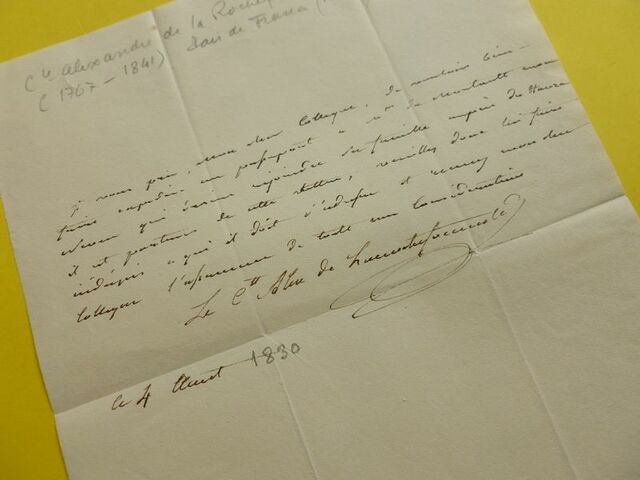 Cte Alexandre de la Rochef
(1767 – 1841) Pair de France (
je vous prie, mon cher Collegue, de vouloir bien
faire expedier un passeport à Mr de
neveu qui desire rejoindre sa famille auprès du Havre
il est porteur de cette lettre, veuillez donc lui faire
indiquer à qui il doit s'adresser et recevez mon cher
Collegue l'assurance de toute ma Consideration
Le Cte Alex de Larochefoucauld
ce 4 Aout 1830